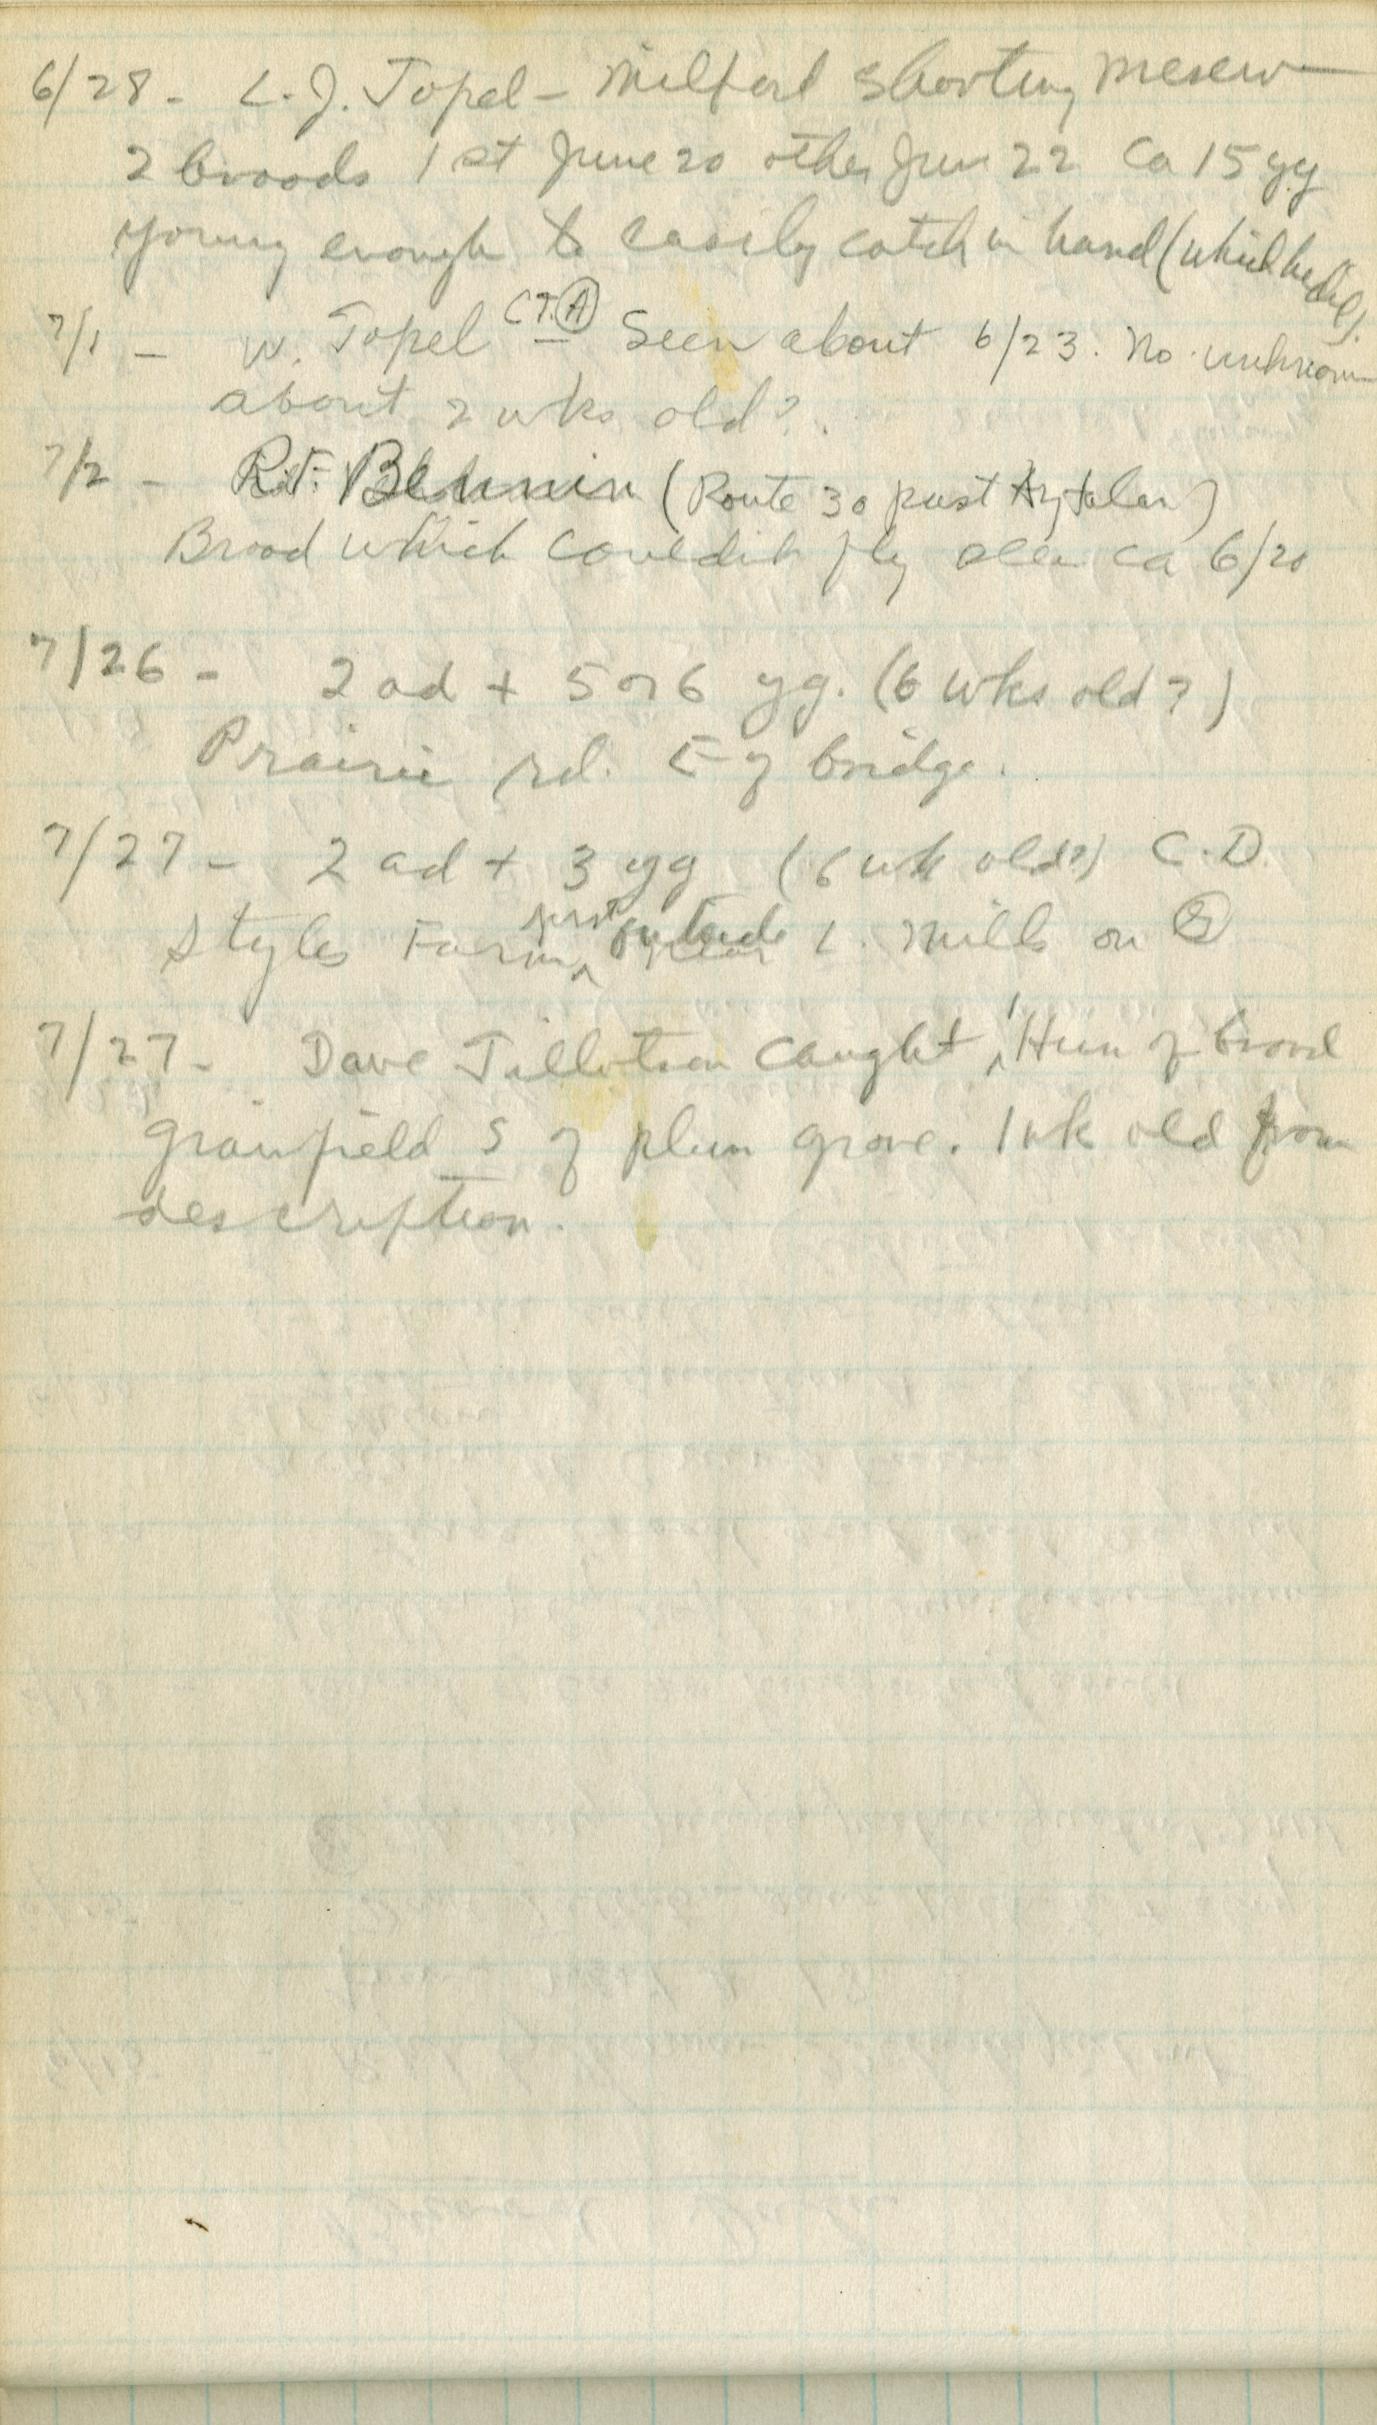 6/28 - L. J. Topel - Milford Shooting
2 broods 1st June 20 other Jun 22 Ca 15 yg
young enough to easily catch in hand (which he did).
7/1 - W. Topel CT. A Seen about 6/23. No. unknown
about 2 wks old?
7/2 - R.F. (Route 30 past Aztalan)
Brood which couldnt fly seen ca 6/20
7/26 - 2 ad + 5 or 6 yg. (6 wks old?)
Prairie rd. E of bridge.
7/27 - 2 ad + 3 yg (6 wk old?) C.D.
Styles Farm just outside L. Mills on
7/27 - Dave Tillotson caught 1 Hun of brood
grainfield S of plum grove. 1 wk old from
description.